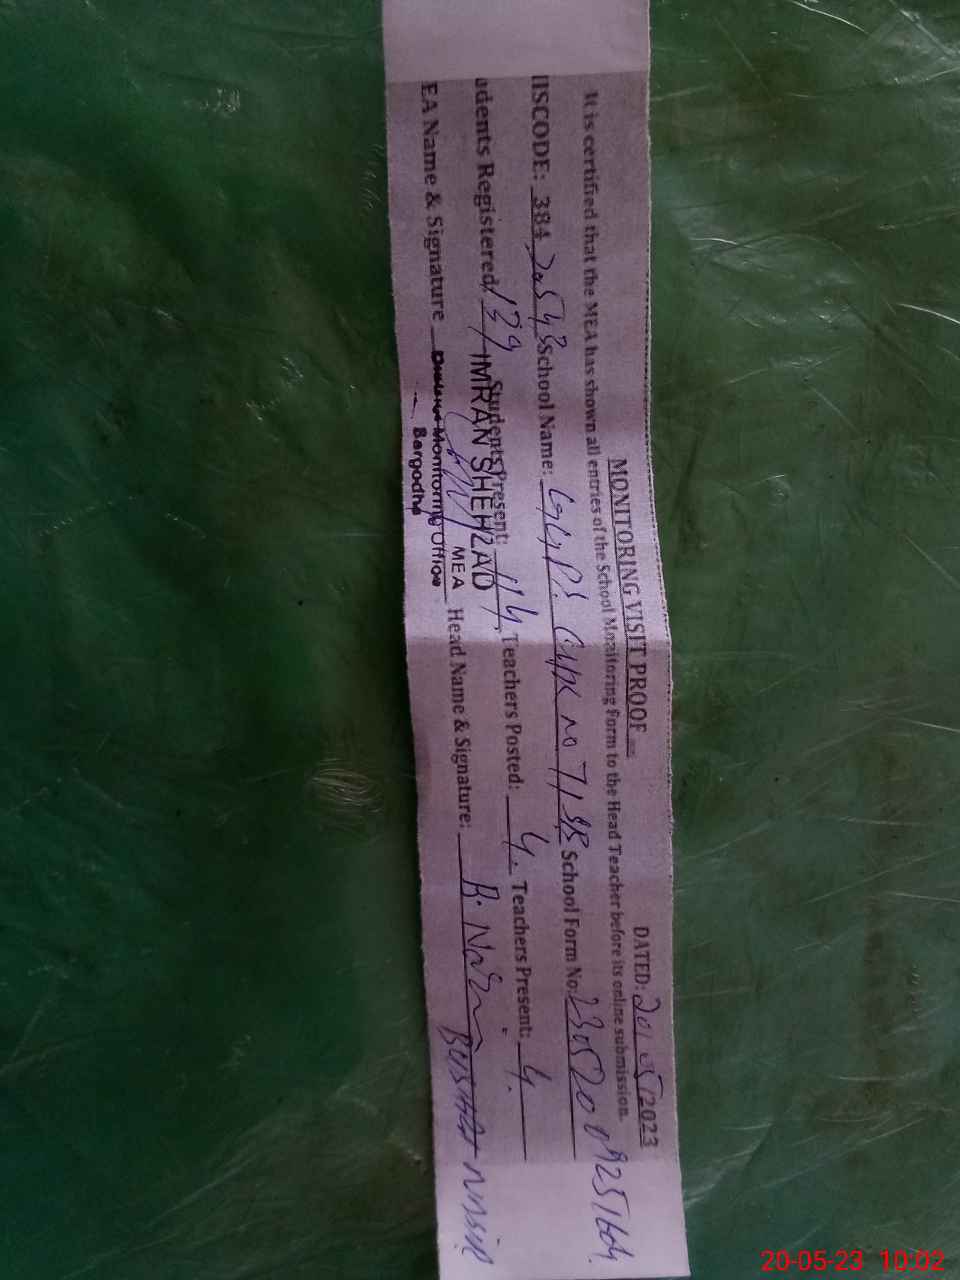 MONITORING VISIT PROOF
DATED: 20/05/2023
It is certified that the MEA has shown all entries of the School Monitoring Form to the Head Teacher before its online submission.
IISCODE: 384 School Name: no 71 SB School Form No:
udents Registered: 139 Students Present: 114 Teachers Posted: 4. Teachers Present: 4.
IMRAN SHEHZAD
MEA
EA Name & Signature Monitoring Office Head Name & Signature: B. Nasir
Sargodha
BUSHRA NASIR
20-05-23 10:02